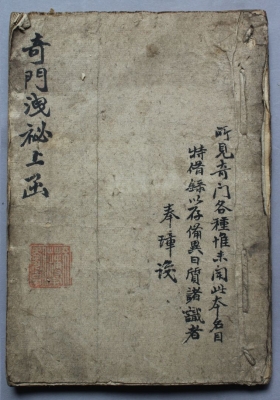 奇門洩祕上函
所見奇门各種惟未聞此本名目
特借錄以存備異日質諸識者
奉璋识